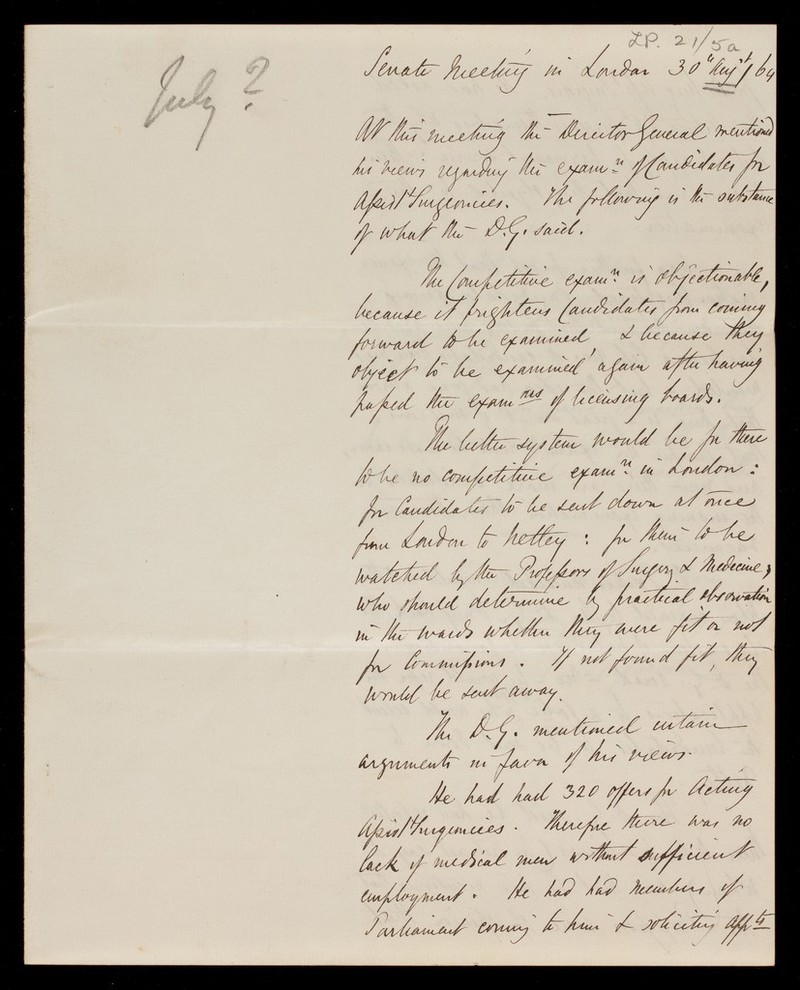 L.P. 21/5a
July?
Senate Meeting in London 30th Aug't/64
At this meeting the Director General mentioned
his views regarding the exam:n of Candidates for
Assist't Surgeoncies. The following is the substance
of what the D.G. said.
The Competitive exam:n is objectionable,
because it frightens Candidates from coming
forward to be examined, & because they
object to be examined again after having
passed the exam:ons of licensing boards.
The better system would be for there
to be no competitive exam:n in London:
for Candidates to be sent down at once
from London to Netley: for them to be
watched by the Professors of Surgery & Medicine,
who should determine by practical observation
in the wards whether they were fit or not
for Commissions. If not found fit, they
would be sent away.
The D.G. mentioned certain
arguments in favor of his views.
He had had 320 offers for Acting
Assist't Surgeoncies. Therefore there was no
lack of medical men without sufficient
employment. He had had members of
Parliament coming to him & soliciting app'ts